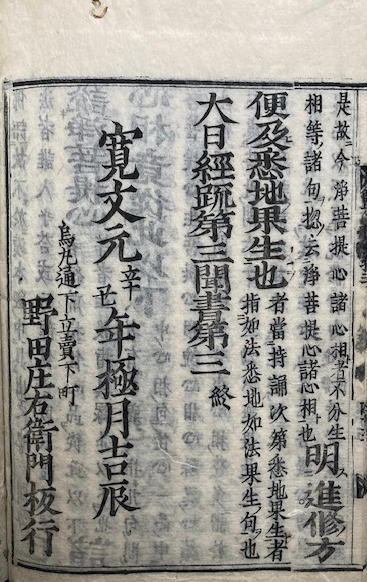 是故今淨菩提心諸心相者不分生
相等諸句惣云淨菩提心諸心相也 明進修方
便及悉地果生也 者當持誦次第悉地果生者
指如法悉地如法果生句也
大日經疏第三聞書第三 終
寛文元辛丑年極月吉辰
烏丸通下立賣下町
野田庄右衛門板行